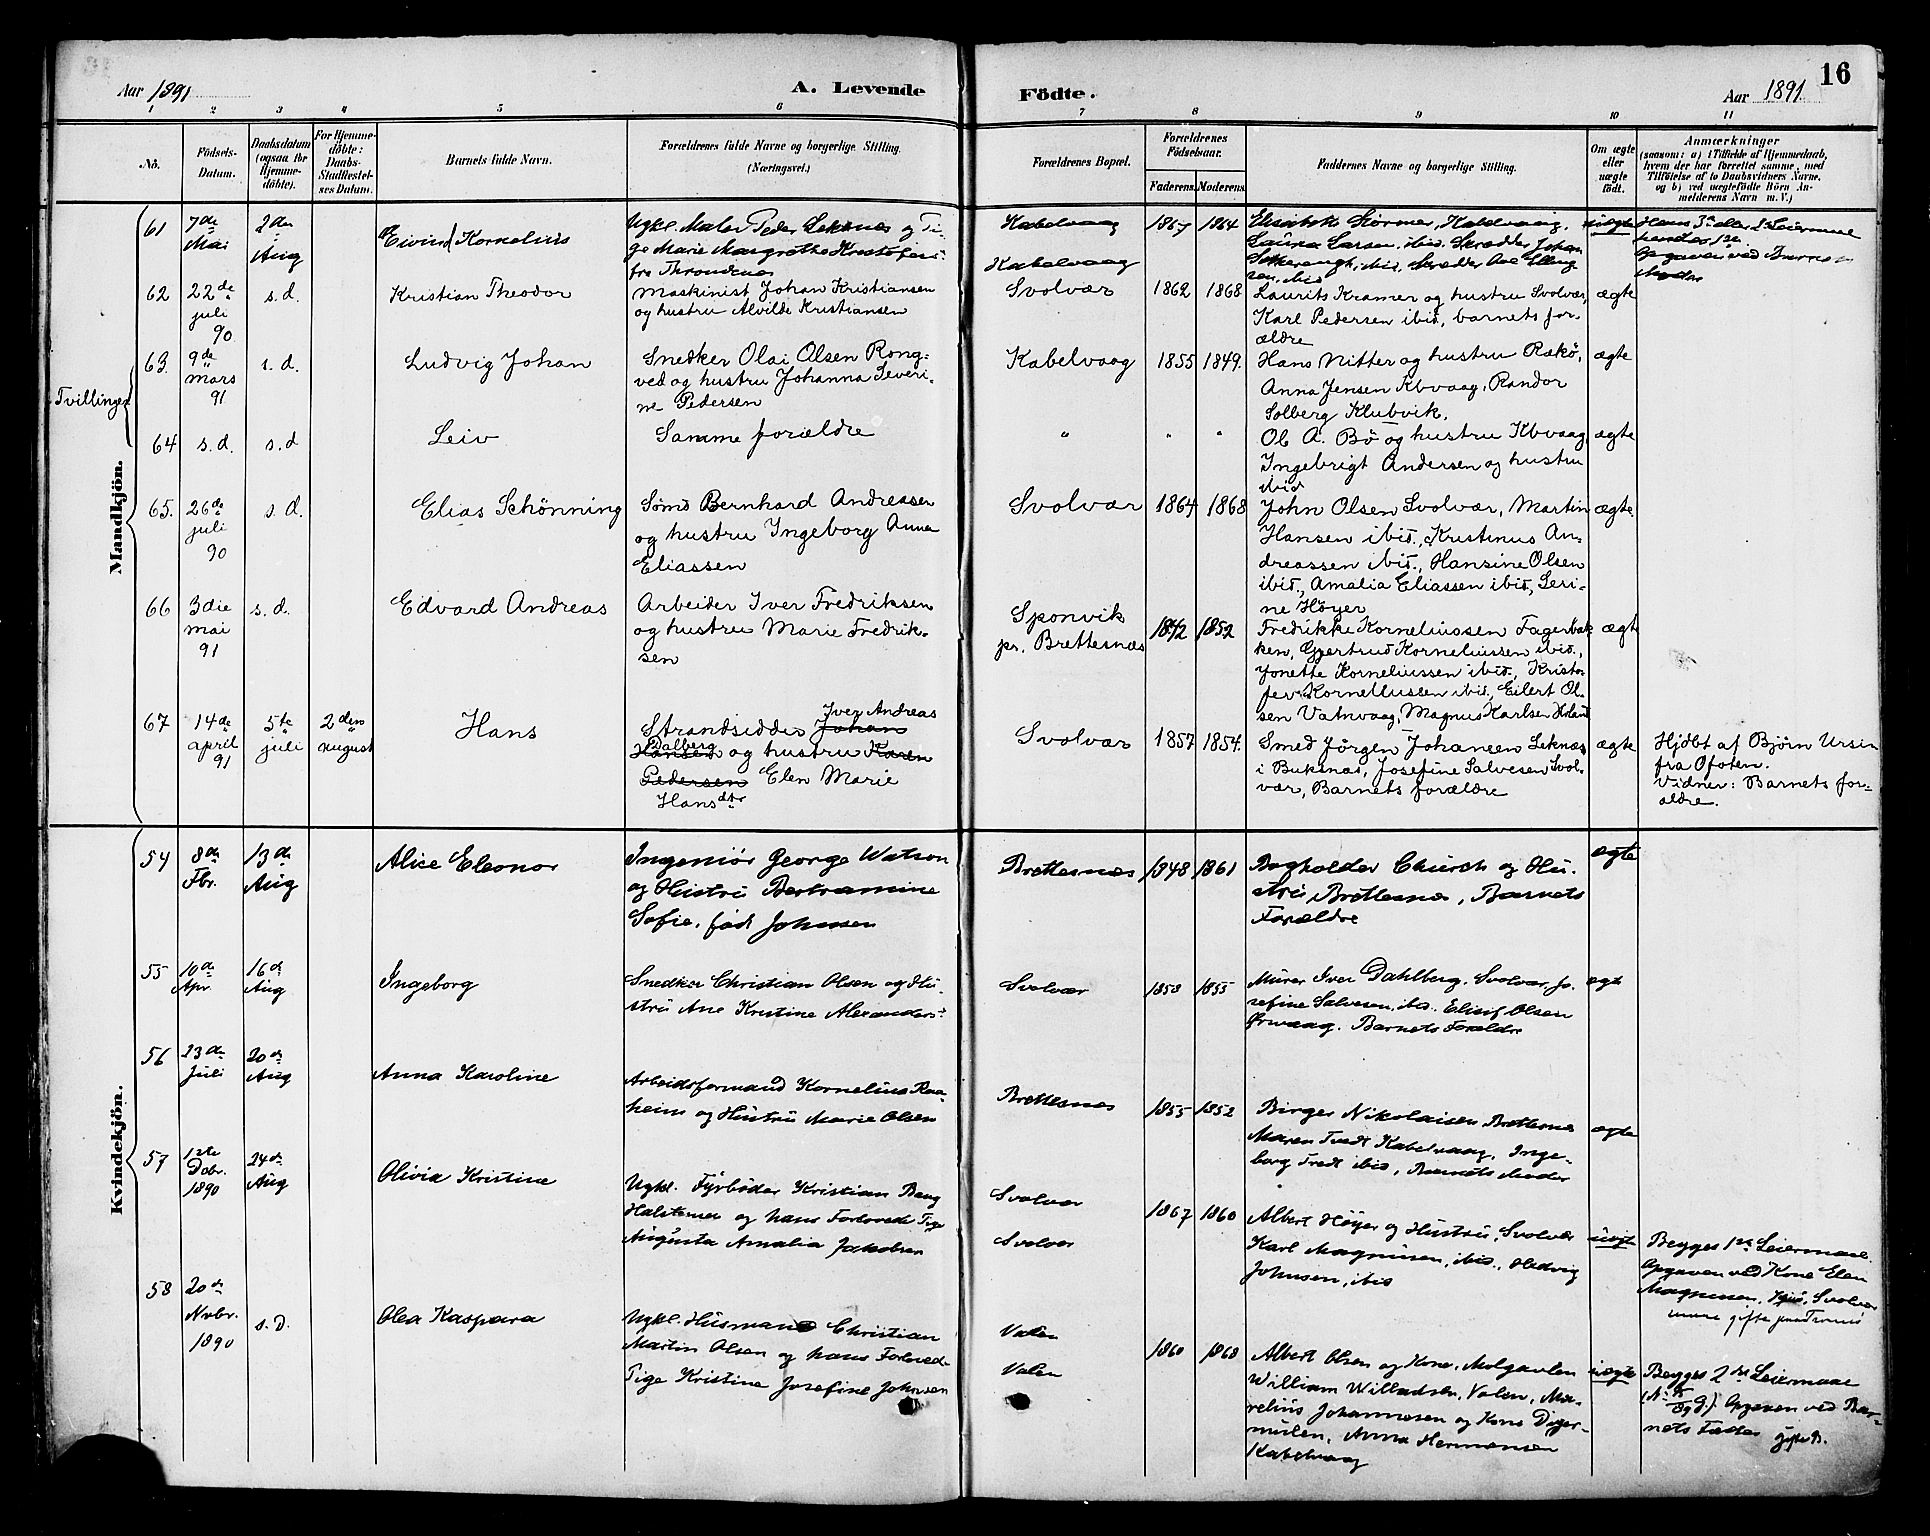 Aar 1891
A. Levende
Födte.
Aar 1891.
16
1 2 3 4 5 6 7 8 9 10 11
No.
Födsels-
Datum.
Daabsdatum
(ogsaa for
Hjemme-
döbte).
For Hjemme-
döbte:
Daabs-
Stadfæstel-
ses Datum.
Barnets fulde Navn.
Forældrenes fulde Navne og borgerlige Stilling.
(Næringsvei.)
Forældrenes Bopæl.
Forældrenes
Födselsaar.
Faderens.
Moderens.
Faddernes Navne og borgerlige Stilling.
Om ægte
eller
uægte
födt.
Anmærkninger
(saasom: a) i Tilfælde af Hjemmedaab,
hvem der har forrettet samme, med
Tilföielse af to Daabsvidners Navne,
og b) ved uægtefödte Börn An-
melderens Navn m. V.)
Mandkjön.
Tvillinger
61
7de
Mai
2den
Aug
Eivind Kornelius
Ugkl. Maler Peder Leknes og Pi-
ge Marie Margrethe Kristofers
fra Throndenes
Kabelvaag
Kabelvaag
1867 1864
Elisabeth Størmer, Kabelvaag,
Laura Larsen, ibid. Skrædder Johan
ibid, Skrædder Elling
sen, ibid
uægte
Hans 3die eller Leiermaal
hendes 1ste
Opgaven ved Barnets
Moder
62
22de
juli
90
s. d.
Kristian Theodor
Maskinist Johan Kristiansen
og hustru Alvilde Kristiansen
Svolvær
1862 1868
Laurits Kramer og hustru Svolvær,
Karl Pedersen ibid, barnets for-
ældre
ægte
63.
9de
mars
91
s. d.
Ludvig Johan
Snedker Olai Olsen Rong-
ved og hustru Johanna Severi-
ne Pedersen
Kabelvaag
1855 1849.
Hans Nitter og hustru Rækø,
Anna Jensen Kbvaag, Randor
Solberg Klubvik.
ægte
64
s. d.
s. d
Leiv
Samme forældre
" " "
Ole A. Bö og hustru Kbvaag,
Ingebrigt Andersen og hustru
ibid
ægte
65.
26de
juli
90
s. d.
Elias Schönning
Sømd Bernhard Andreassen
og hustru Ingeborg Anna
Eliassen
Svolvær
1864 1868
John Olsen Svolvær, Martin
Hansen ibid., Kristinus An-
dreassen ibid., Hansine Olsen
ibid., Amalia Eliassen ibid, Seri-
ne Höyer
ægte.
66
3die
mai
91
s. d.
Edvard Andreas
Arbeider Iver Fredriksen
og hustru Marie Fredrik-
sen
Sponvik
pr. Brettesnæs
1842 1852
Fredrikke Korneliussen Fagerbak
ken, Gjertrud Korneliussen ibid.,
Jonette Korneliussen ibid., Kristo-
fer Korneliussen ibid, Eilert Ol-
sen Vatnvaag, Magnus Karlsen
ægte
67
14de
april
91
5te
juli
2den
august
Hans
Iver Andreas
Strandsidder Johans
Dalberg
Hansen og hustru Karen
Pedersen Elen Marie
Hansdtr
Svolvær
1857 1854.
Smed Jörgen Johansen Leknæs
i Buksnæs, Josefine Salvesen Svol-
vær, Barnets forældre
ægte
Hjdbt af Björn Ursin
fra Ofoten.
Vidner: Barnets for-
ældre.
Kvindekjön.
54
8de
Fbr.
13de
Aug
Alice Eleonor
Ingeniör George Watson
og Hustru Bertramine
Sofie, född Johnsen
Brettesnæs
1848 1861
Bogholder Church og Hu-
stru Brettesnæs, Barnets
Forældre
ægte
55
10de
Apr.
16de
Aug
Ingeborg
Snedker Christian Olsen og Hu-
stru Ane Kristine Alexanders
Svolvær
1858 1855
Murer Iver Dahlberg, Svolvær, Jo-
sefine Salvesen, ibid. Elisif Olsen
Ørsvaag. Barnets Forældre
ægte
56
23de
Juli
20de
Aug
Anna Karoline
Arbeidsformand Kornelius Raa-
heim og Hustru Marie Olsen
Brettesnæs
1855 1852
Birger Nikolaisen Brettesnæs
Maren Tvedt Kabelvaag, Inge-
borg Tvedt ibid, Barnets Moder
ægte
57
12te
Dcbr.
1890
24de
Aug
Olivia Kristine
Ugkl. Fyrböder Kristian Bang
Halstensen og hans Forlovede Pige
Augusta Amalia Jakobsen
Svolvær
Svolvær
1867 1860
Albert Höyer og Hustru, Svolvær
Karl Magnusen, ibid., Hedvig
Johnsen, ibid
uægte
Begges 1ste Leiermaal
Opgaven ved Kone Elen
Magnussen, Svolvær
58
20de
Nvbr.
1890
s. d.
Olea Kaspara
Ugkl. Husmand Christian
Martin Olsen og hans Forlovede
Pige Kristine Josefine Johnsen
Valen
Valen
1860 1868
Albert Olsen og Kone, Molgavlen
William Willadsen, Valen, Ma-
relius Johannesen og Kone Diger-
mulen, Anna Hermansen
Kabelvaag
uægte
Begges 2det Leiermaal
Opgaven ved Bar-
nets Fader